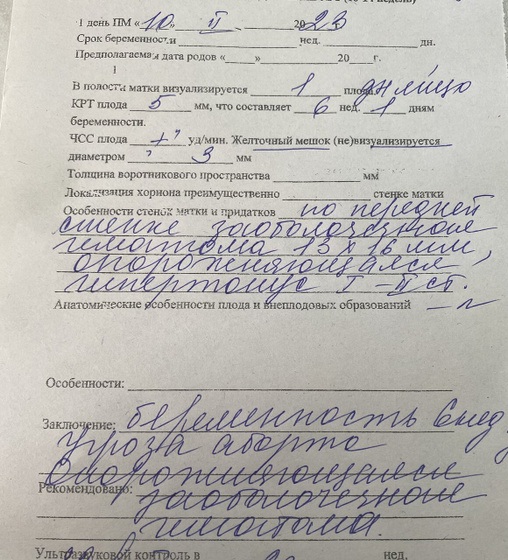 1 день ПМ «10» II 2023
Срок беременности нед. дн.
Предполагаемая дата родов «____» 20__ г.
1
В полости матки визуализируется 1 плод
КРТ плода 5 мм, что составляет 6 нед. 1 дням
беременности.
ЧСС плода + уд/мин. Желточный мешок (не)визуализируется
диаметром 3 мм
Толщина воротникового пространства мм
Локализация хориона преимущественно стенке матки
Особенности стенок матки и придатков по передней
стенке заоболочечная
гематома 13 х 16 мм
опорожняющаяся,
гипертонус I-II ст.
Анатомические особенности плода и внеплодовых образований
Особенности:
Заключение: беременность 6 нед
Угроза аборта
Опорожняющаяся
Рекомендовано: заоболочечная
гематома.
Ультразвуковой контроль в нед.